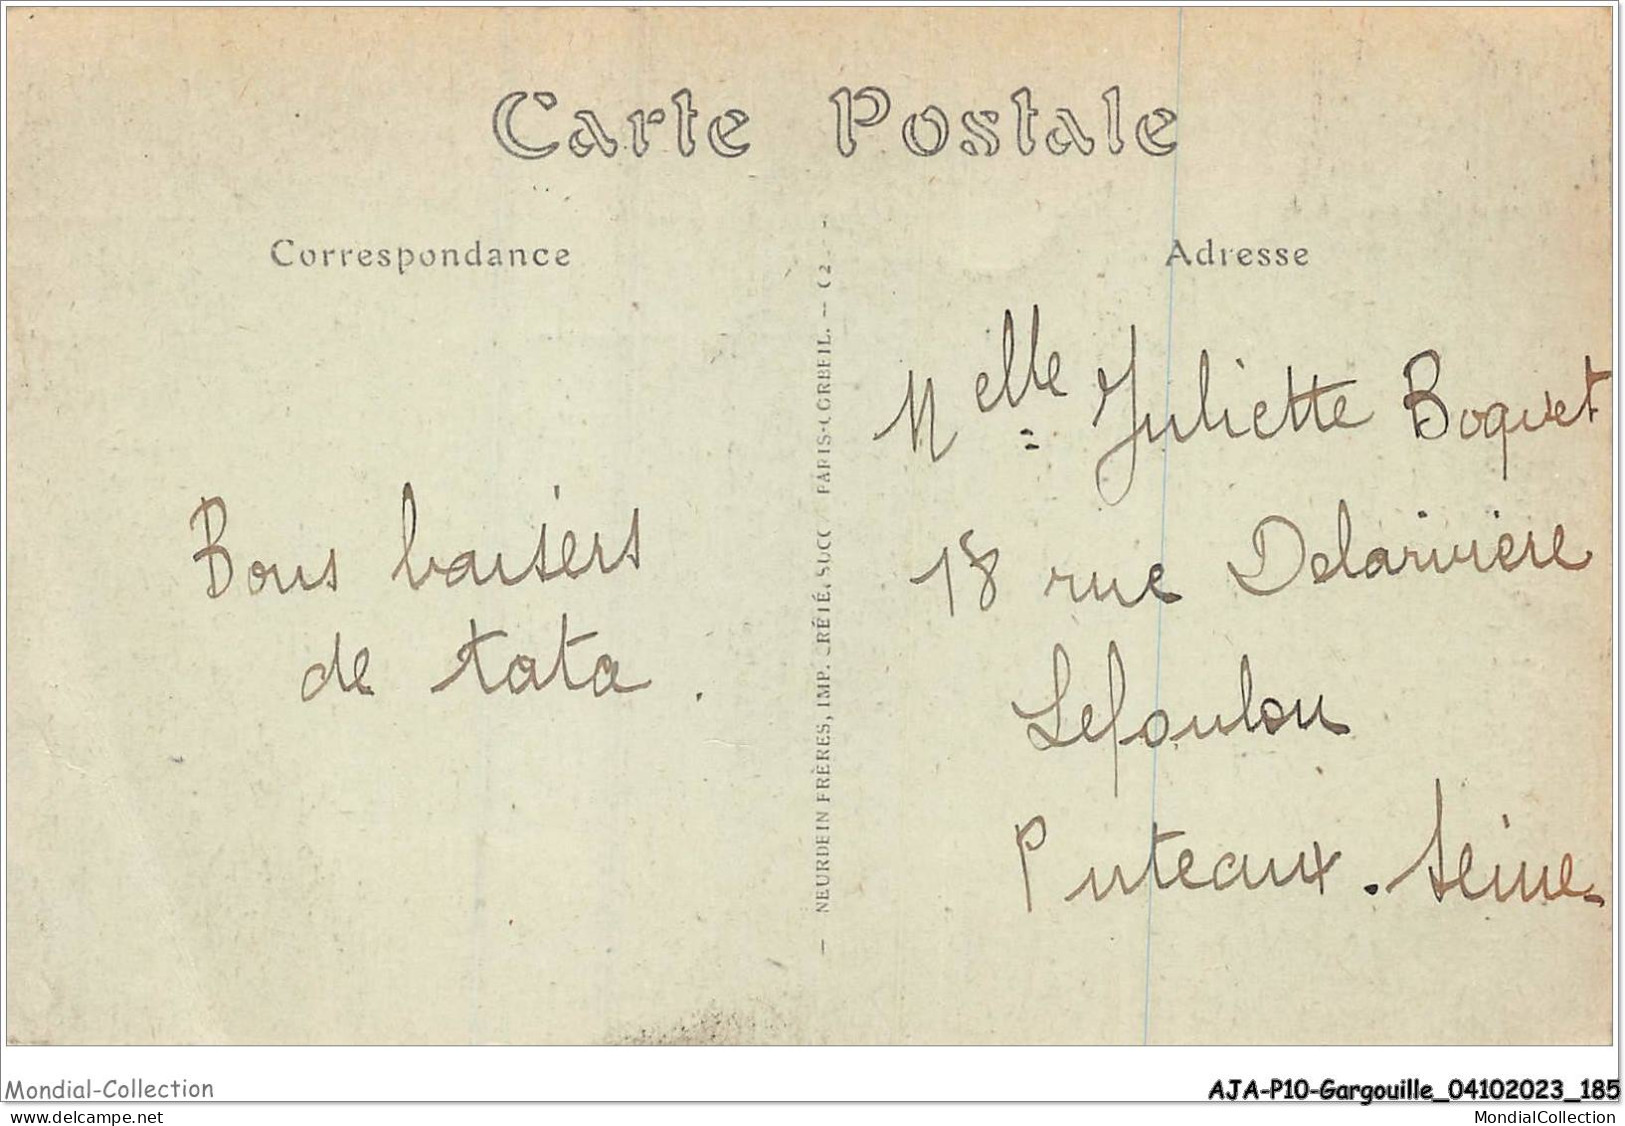 Carte Postale
Correspondance
Adresse
Bons baisers
de tata.
NEURDEIN FRÈRES, IMP. CRÉTÉ, SUCC PARIS-CORBEIL. — C2
Melle Juliette Boquet
18 rue Delarivière
Lefoulou
Puteaux. Seine.
Mondial-Collection
AJA-P10-Gargouille_04102023_185
www.delcampe.net
MondialCollection